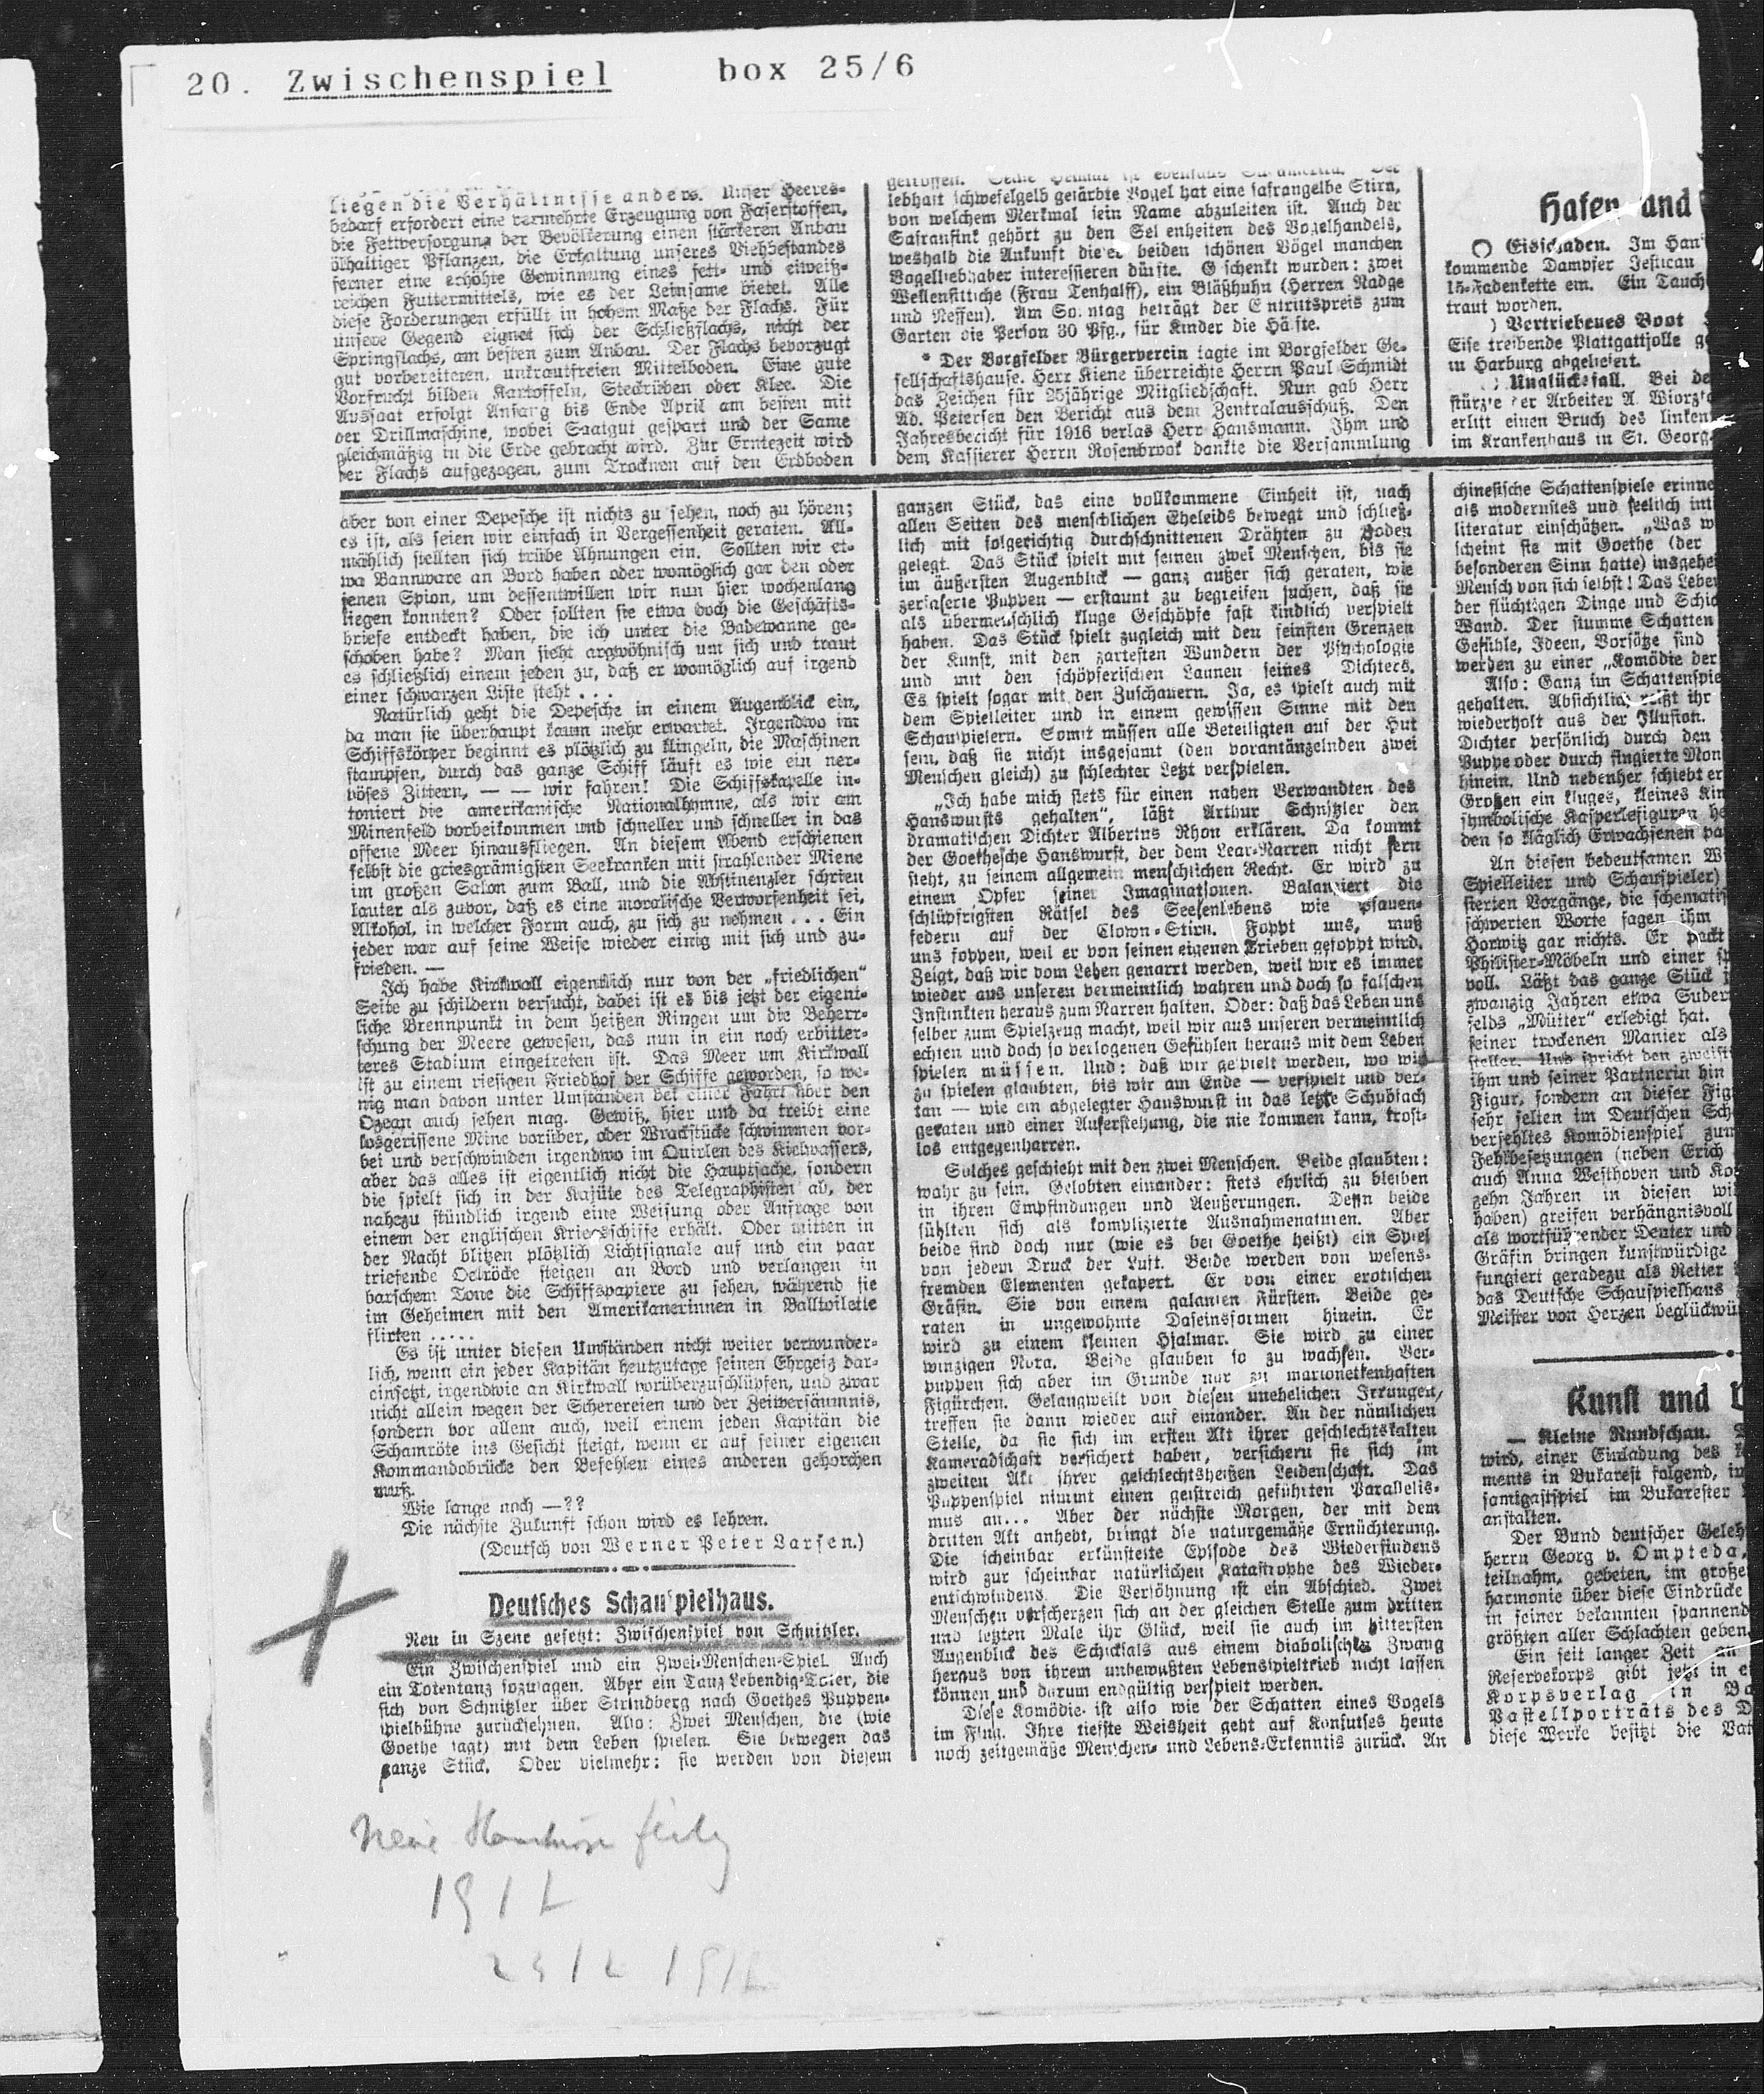 20. Zwischenspiel box 25/6
liegen die Verhältnisse anders. Unser Heeres-
bedarf erfordert eine vermehrte Erzeugung von Faserstoffen,
die Fettversorgung der Bevölkerung einen stärkeren Anbau
ölhaltiger Pflanzen, die Erhaltung unseres Viehbestandes
ferner eine erhöhte Gewinnung eines fett- und eiweiß-
reichen Futtermittels, wie es der Leinsame bietet. Alle
diese Forderungen erfüllt in hohem Maße der Flachs. Für
unsere Gegend eignet sich der Schließflachs, nicht der
Springflachs, am besten zum Anbau. Der Flachs bevorzugt
gut vorbereiteten, unkrautfreien Mittelboden. Eine gute
Vorfrucht bilden Kartoffeln, Steckrüben oder Klee. Die
Aussaat erfolgt Anfang bis Ende April am besten mit
der Drillmaschine, wobei Saatgut gespart und der Same
gleichmäßig in die Erde gebracht wird. Zur Erntezeit wird
der Flachs aufgezogen, zum Trocknen auf den Erdboden
lebhaft schwefelgelb gefärbte Vogel hat eine safrangelbe Stirn,
von welchem Merkmal sein Name abzuleiten ist. Auch der
Safranfink gehört zu den Seltenheiten des Vogelhandels,
weshalb die Ankunft dieser beiden schönen Vögel manchen
Vogelliebhaber interessieren dürfte. Geschenkt wurden: zwei
Wellensittiche (Frau Tenhalff), ein Bläßhuhn (Herren Nadge
und Neffen). Am Sonntag beträgt der Eintrittspreis zum
Garten die Person 30 Pfg., für Kinder die Hälfte.
* Der Borgfelder Bürgerverein tagte im Borgfelder Ge-
sellschaftshause. Herr Kiene überreichte Herrn Paul Schmidt
das Zeichen für 25jährige Mitgliedschaft. Nun gab Herr
Ad. Petersen den Bericht aus dem Zentralausschuß. Den
Jahresbericht für 1916 verlas Herr Hansmann. Ihm und
dem Kassierer Herrn Rosenbrook dankte die Versammlung
Hafen und
Eisschaden. Im Han
kommende Dampfer
15-Fadenkette ein. Ein Tauch
traut worden.
) Vertriebenes Boot
Eise treibende Plattgattjolle g
in Harburg abgeliefert.
) Unglücksfall. Bei de
stürzte der Arbeiter A.
erlitt einen Bruch des linken
im Krankenhaus in St. Georg.
aber von einer Depesche ist nichts zu sehen, noch zu hören;
es ist, als seien wir einfach in Vergessenheit geraten. All-
mählich stellten sich trübe Ahnungen ein. Sollten wir et-
wa Bannware an Bord haben oder womöglich gar den oder
jenen Spion, um dessentwillen wir nun hier wochenlang
liegen konnten? Oder sollten sie etwa doch die Geschäfts-
briefe entdeckt haben, die ich unter die Badewanne ge-
schoben habe? Man sieht argwöhnisch um sich und traut
es schließlich einem jeden zu, daß er womöglich auf irgend
einer schwarzen Liste steht . . .
Natürlich geht die Depesche in einem Augenblick ein,
da man sie überhaupt kaum mehr erwartet. Irgendwo im
Schiffskörper beginnt es plötzlich zu klingeln, die Maschinen
stampfen, durch das ganze Schiff läuft es wie ein ner-
vöses Zittern, — — wir fahren! Die Schiffskapelle in-
toniert die amerikanische Nationalhymne, als wir am
Minenfeld vorbeikommen und schneller und schneller in das
offene Meer hinausfliegen. An diesem Abend erschienen
selbst die griesgrämigsten Seekranken mit strahlender Miene
im großen Salon zum Ball, und die Abstinenzler schrien
lauter als zuvor, daß es eine moralische Verworfenheit sei,
Alkohol, in welcher Form auch, zu sich zu nehmen . . . Ein
jeder war auf seine Weise wieder einig mit sich und zu-
frieden. —
Ich habe Kirkwall eigentlich nur von der „friedlichen“
Seite zu schildern versucht, dabei ist es bis jetzt der eigent-
liche Brennpunkt in dem heißen Ringen um die Beherr-
schung der Meere gewesen, das nun in ein noch erbitter-
teres Stadium eingetreten ist. Das Meer um Kirkwall
ist zu einem riesigen Friedhof der Schiffe geworden, so we-
nig man davon unter Umständen bei einer Fahrt über den
Ozean auch sehen mag. Gewiß, hier und da treibt eine
losgerissene Mine vorüber, oder Wrackstücke schwimmen vor-
bei und verschwinden irgendwo im Quirlen des Kielwassers,
aber das alles ist eigentlich nicht die Hauptsache, sondern
die spielt sich in der Kajüte des Telegraphisten ab, der
nahezu stündlich irgend eine Weisung oder Anfrage von
einem der englischen Kriegsschiffe erhält. Oder mitten in
der Nacht blitzen plötzlich Lichtsignale auf und ein paar
triefende Oelröcke steigen an Bord und verlangen in
barschem Tone die Schiffspapiere zu sehen, während sie
im Geheimen mit den Amerikanerinnen in Balltoilette
flirten . . . . .
Es ist unter diesen Umständen nicht weiter verwunder-
lich, wenn ein jeder Kapitän heutzutage seinen Ehrgeiz dar-
einsetzt, irgendwie an Kirkwall vorüberzuschlüpfen, und zwar
nicht allein wegen der Scherereien und der Zeitversäumnis,
sondern vor allem auch, weil einem jeden Kapitän die
Schamröte ins Gesicht steigt, wenn er auf seiner eigenen
Kommandobrücke den Befehlen eines anderen gehorchen
muß.
Wie lange noch —??
Die nächste Zukunft schon wird es lehren.
(Deutsch von Werner Peter Larsen.)
Deutsches Schauspielhaus.
Neu in Szene gesetzt: Zwischenspiel von Schnitzler.
Ein Zwischenspiel und ein Zwei-Menschen-Spiel. Auch
ein Totentanz sozusagen. Aber ein Tanz Lebendig-Toter, die
sich von Schnitzler über Strindberg nach Goethes Puppen-
spielbühne zurücksehnen. Also: Zwei Menschen, die (wie
Goethe sagt) mit dem Leben spielen. Sie bewegen das
ganze Stück. Oder vielmehr: sie werden von diesem
ganzen Stück, das eine vollkommene Einheit ist, nach
allen Seiten des menschlichen Eheleids bewegt und schließ-
lich mit folgerichtig durchschnittenen Drähten zu Boden
gelegt. Das Stück spielt mit seinen zwei Menschen, bis sie
im äußersten Augenblick — ganz außer sich geraten, wie
zerfaserte Puppen — erstaunt zu begreifen suchen, daß sie
als übermenschlich kluge Geschöpfe fast kindlich verspielt
haben. Das Stück spielt zugleich mit den feinsten Grenzen
der Kunst, mit den zartesten Wundern der Psychologie
und mit den schöpferischen Launen seines Dichters.
Es spielt sogar mit den Zuschauern. Ja, es spielt auch mit
dem Spielleiter und in einem gewissen Sinne mit den
Schauspielern. Somit müssen alle Beteiligten auf der Hut
sein, daß sie nicht insgesamt (den vorantänzelnden zwei
Menschen gleich) zu schlechter Letzt verspielen.
„Ich habe mich stets für einen nahen Verwandten des
Hanswursts gehalten“, läßt Arthur Schnitzler den
dramatischen Dichter Albertus Rhon erklären. Da kommt
der Goethesche Hanswurst, der dem Lear-Narren nicht fern
steht, zu seinem allgemein menschlichen Recht. Er wird zu
einem Opfer seiner Imaginationen. Balanciert die
schlüpfrigsten Rätsel des Seelenlebens wie Pfauen-
federn auf der Clown-Stirn. Foppt uns, muß
uns foppen, weil er von seinen eigenen Trieben gefoppt wird.
Zeigt, daß wir vom Leben genarrt werden, weil wir es immer
wieder aus unseren vermeintlich wahren und doch so falschen
Instinkten heraus zum Narren halten. Oder: daß das Leben uns
selber zum Spielzeug macht, weil wir aus unseren vermeintlich
echten und doch so verlogenen Gefühlen heraus mit dem Leben
spielen müssen. Und: daß wir gespielt werden, wo wir
zu spielen glaubten, bis wir am Ende — verspielt und ver-
tan — wie ein abgelegter Hanswurst in das letzte Schubfach
geraten und einer Auferstehung, die nie kommen kann, trost-
los entgegenharren.
Solches geschieht mit den zwei Menschen. Beide glaubten:
wahr zu sein. Gelobten einander: stets ehrlich zu bleiben
in ihren Empfindungen und Aeußerungen. Denn beide
fühlten sich als komplizierte Ausnahmenaturen. Aber
beide sind doch nur (wie es bei Goethe heißt) ein Spiel
von jedem Druck der Luft. Beide werden von wesens-
fremden Elementen gekapert. Er von einer erotischen
Gräfin. Sie von einem galanten Fürsten. Beide ge-
raten in ungewohnte Daseinsformen hinein. Er
wird zu einem kleinen Hjalmar. Sie wird zu einer
winzigen Nora. Beide glauben so zu wachsen. Ver-
puppen sich aber im Grunde nur zu marionettenhaften
Figürchen. Gelangweilt von diesen unehelichen Irrungen,
treffen sie dann wieder auf einander. An der nämlichen
Stelle, da sie sich im ersten Akt ihrer geschlechtskalten
Kameradschaft versichert haben, versichern sie sich im
zweiten Akt ihrer geschlechtsheißen Leidenschaft. Das
Puppenspiel nimmt einen geistreich geführten Parallelis-
mus an... Aber der nächste Morgen, der mit dem
dritten Akt anhebt, bringt die naturgemäße Ernüchterung.
Die scheinbar erkünstelte Episode des Wiederfindens
wird zur scheinbar natürlichen Katastrophe des Wieder-
entschwindens. Die Versöhnung ist ein Abschied. Zwei
Menschen verscherzen sich an der gleichen Stelle zum dritten
und letzten Male ihr Glück, weil sie auch im bittersten
Augenblick des Schicksals aus einem diabolischen Zwang
heraus von ihrem unbewußten Lebensspieltrieb nicht lassen
können und darum endgültig verspielt werden.
Diese Komödie ist also wie der Schatten eines Vogels
im Flug. Ihre tiefste Weisheit geht auf Konfutses heute
noch zeitgemäße Menschen- und Lebens-Erkenntis zurück. An
chinesische Schattenspiele erinne
als modernstes und seelisch im
literatur einschätzen. „Was w
scheint sie mit Goethe (der
besonderen Sinn hatte) insgehe
Mensch von sich selbst! Das Lebe
der flüchtigen Dinge und Schic
Wand. Der stumme Schatten
Gefühle, Ideen, Vorsätze sind
werden zu einer „Komödie der
Also: Ganz im Schattenspie
gehalten. Absichtlich reißt ihr
wiederholt aus der Illusion.
Dichter persönlich durch den
Puppe oder durch fingierte Mon
hinein. Und nebenher schiebt er
Großen ein kluges, kleines Kin
symbolische Kasperlefiguren he
den so kläglich Erwachsenen pa
An diesen bedeutsamen W
Spielleiter und Schauspieler)
sierten Vorgänge, die schematis
schwerten Worte sagen ihm
Horwitz gar nichts. Er packt
Philister-Möbeln und einer sp
voll. Läßt das ganze Stück
zwanzig Jahren etwa Suder
felds „Mütter“ erledigt hat.
seiner trockenen Manier als
steller. Und spricht den zweifl
ihm und seiner Partnerin hin
Figur, sondern an dieser Fig
sehr selten im Deutschen Sch
verfehltes Komödienspiel zum
Fehlbesetzungen (neben Erich
auch Anna Westhoven und Ko
zehn Jahren in diesen wi
haben) greifen verhängnisvoll
als wortführender Deuter und
Gräfin bringen kunstwürdige
fungiert geradezu als Retter
das Deutsche Schauspielhaus
Meister von Herzen beglückwü
Kunst und
— Kleine Rundschau.
wird, einer Einladung des
ments in Bukarest folgend, in
samtgastspiel im Bukarester
anstalten.
Der Bund deutscher Geleh
Herrn Georg v. Ompteda,
teilnahm, gebeten, im große
harmonie über diese Eindrücke
in seiner bekannten spannend
größten aller Schlachten geben.
Ein seit langer Zeit an
Reservekorps gibt jetzt in ei
Korpsverlag in Ba
Pastellporträts des D
diese Werke besitzt die Vat
Neue Hamburger Zeitung